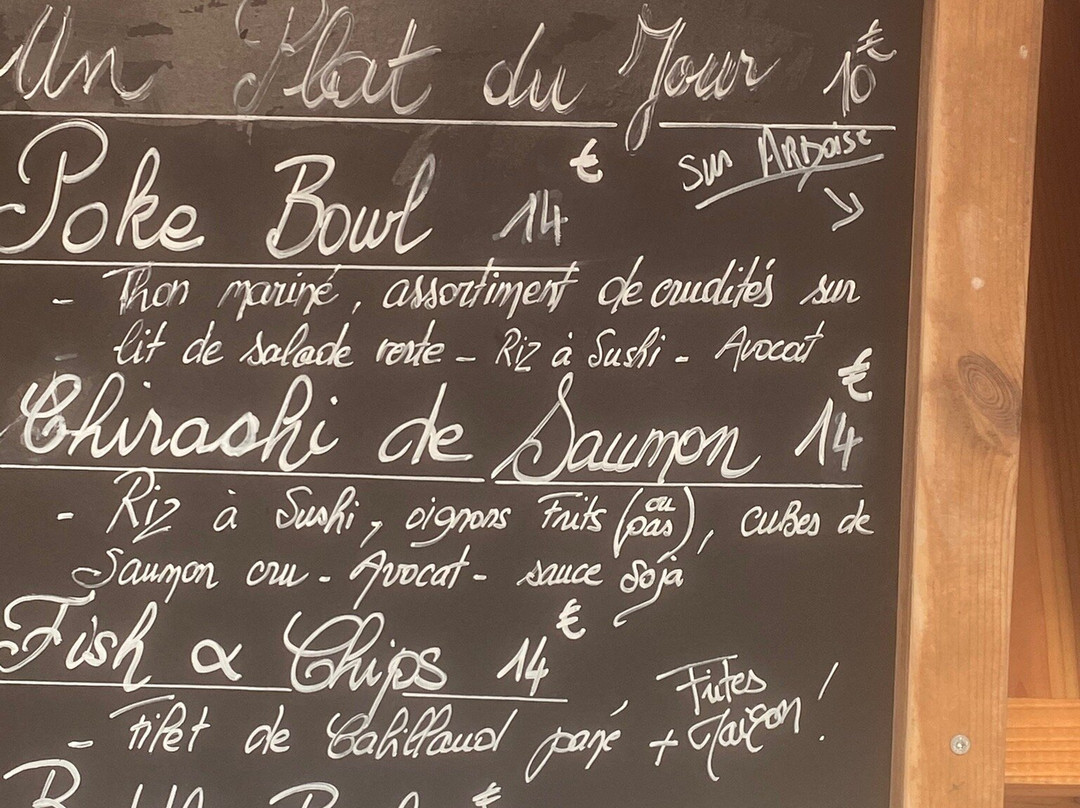 Un Plat du Jour 10€
sur ARDoise
Poke Bowl 14€
- Thon mariné, assortiment de crudités sur
lit de salade verte - Riz à Sushi - Avocat
Chirashi de Saumon 14€
- Riz à Sushi, oignons Frits (ou pas), cubes de
Saumon cru - Avocat - sauce Soja
Fish & Chips 14€
- Filet de Cabillaud pané + Frites Maison!